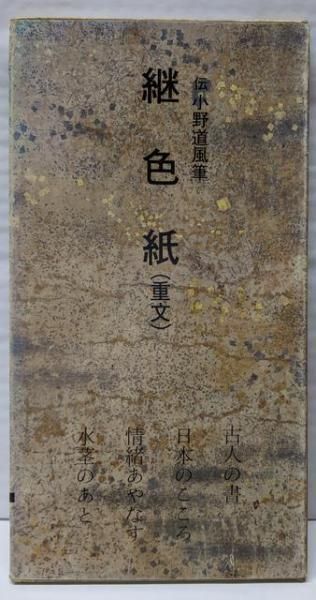 伝小野道風筆
継色紙(重文)
古人の書
日本のこころ
情緒あやなす
水茎のあと